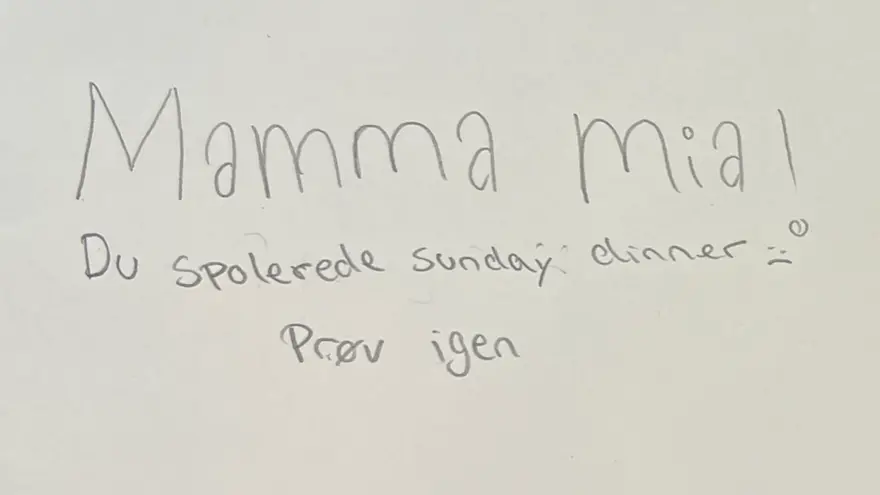 Mamma mia!
Du spolerede sunday dinner :-
Prøv igen